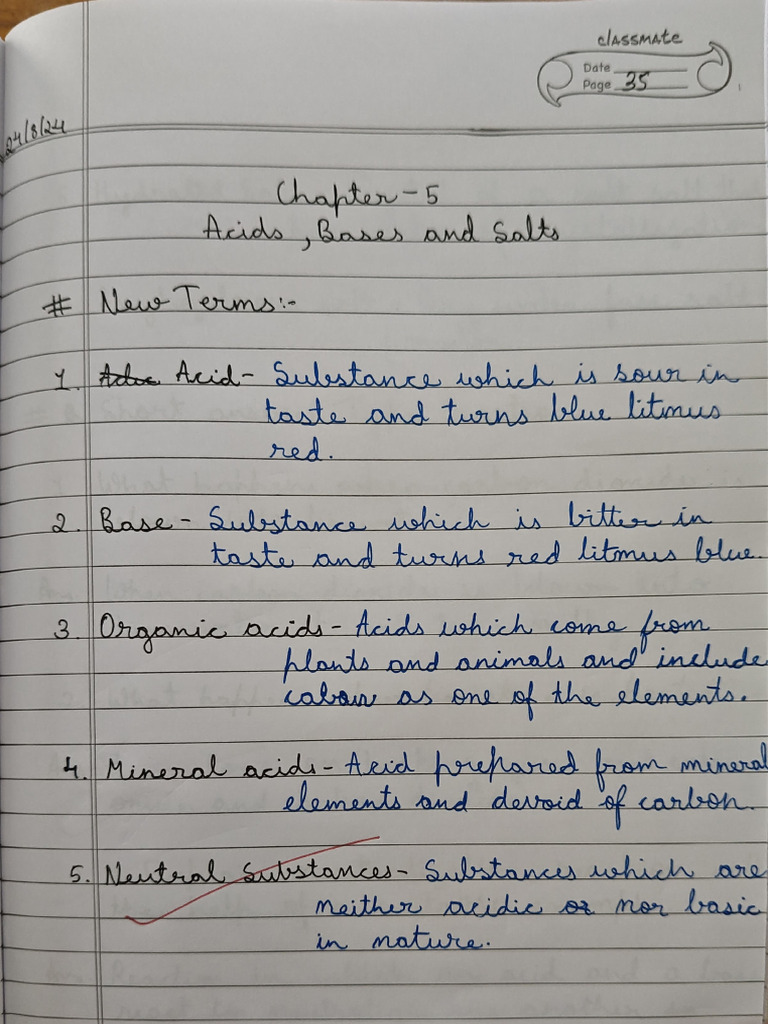 classmate
Date
Page 35
24/8/24
Chapter - 5
Acids, Bases and Salts
# New Terms:-
1. Acid - Substance which is sour in
taste and turns blue litmus
red.
2. Base - Substance which is bitter in
taste and turns red litmus blue.
3. Organic acids - Acids which come from
plants and animals and include
cabon as one of the elements.
4. Mineral acids - Acid prepared from mineral
elements and devoid of carbon.
5. Neutral Substances - Substances which are
neither acidic or nor basic
in nature.